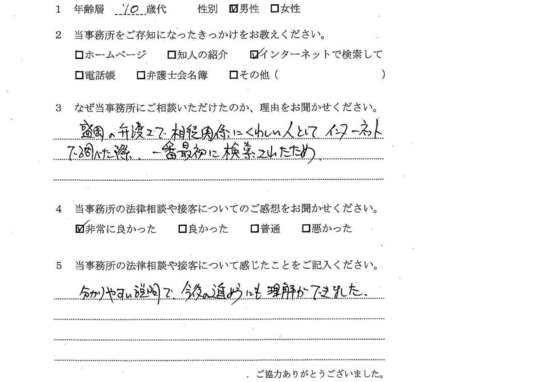 1 年齢層 70 歳代 性別 ☑男性 □女性
2 当事務所をご存知になったきっかけをお教えください。
□ホームページ □知人の紹介 ☑インターネットで検索して
□電話帳 □弁護士会名簿 □その他( )
3 なぜ当事務所にご相談いただけたのか、理由をお聞かせください。
盛岡の弁護士で相続関係にくわしい人として インターネット
で調べた際、一番最初に検索されたため
4 当事務所の法律相談や接客についてのご感想をお聞かせください。
☑非常に良かった □良かった □普通 □悪かった
5 当事務所の法律相談や接客について感じたことをご記入ください。
分かりやすい説明で、今後の進めようにも理解ができました。
ご協力ありがとうございました。